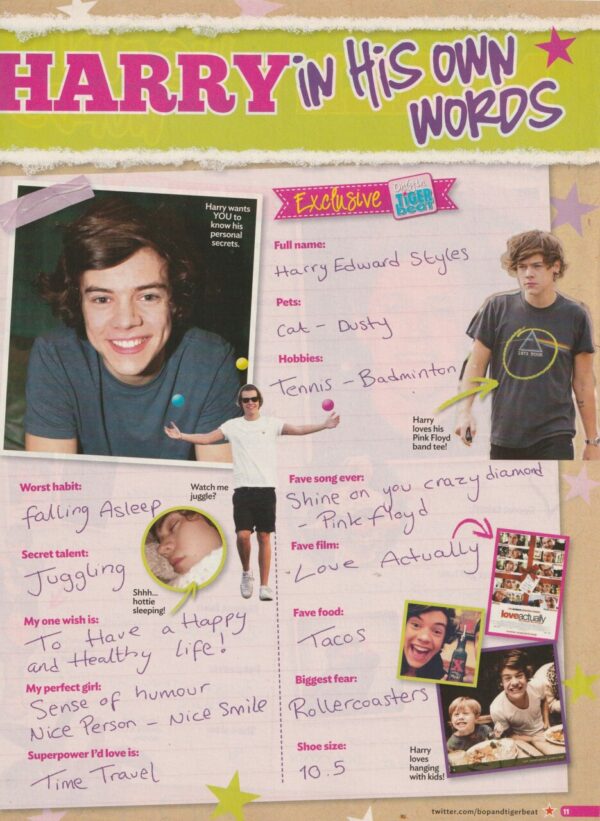 HARRY IN HIS OWN
WORDS
Harry wants
YOU to
know his
personal
secrets.
Exclusive
TIGER
beat
Full name:
Harry Edward Styles
Pets:
Cat - Dusty
Hobbies:
Tennis - Badminton
Harry
loves his
Pink Floyd
band tee!
Worst habit:
falling Asleep
Watch me
juggle?
Secret talent:
Juggling
Shhh...
hottie
sleeping!
My one wish is:
To Have a Happy
and Healthy Life!
My perfect girl:
Sense of humour
Nice Person - Nice Smile
Superpower I'd love is:
Time Travel
Fave song ever:
Shine on you crazy diamond
- Pink floyd
Fave film:
Love Actually
love actually
Fave food:
Tacos
Biggest fear:
Rollercoasters
Shoe size:
10.5
Harry
loves
hanging
with kids!
twitter.com/bopandtigerbeat
11